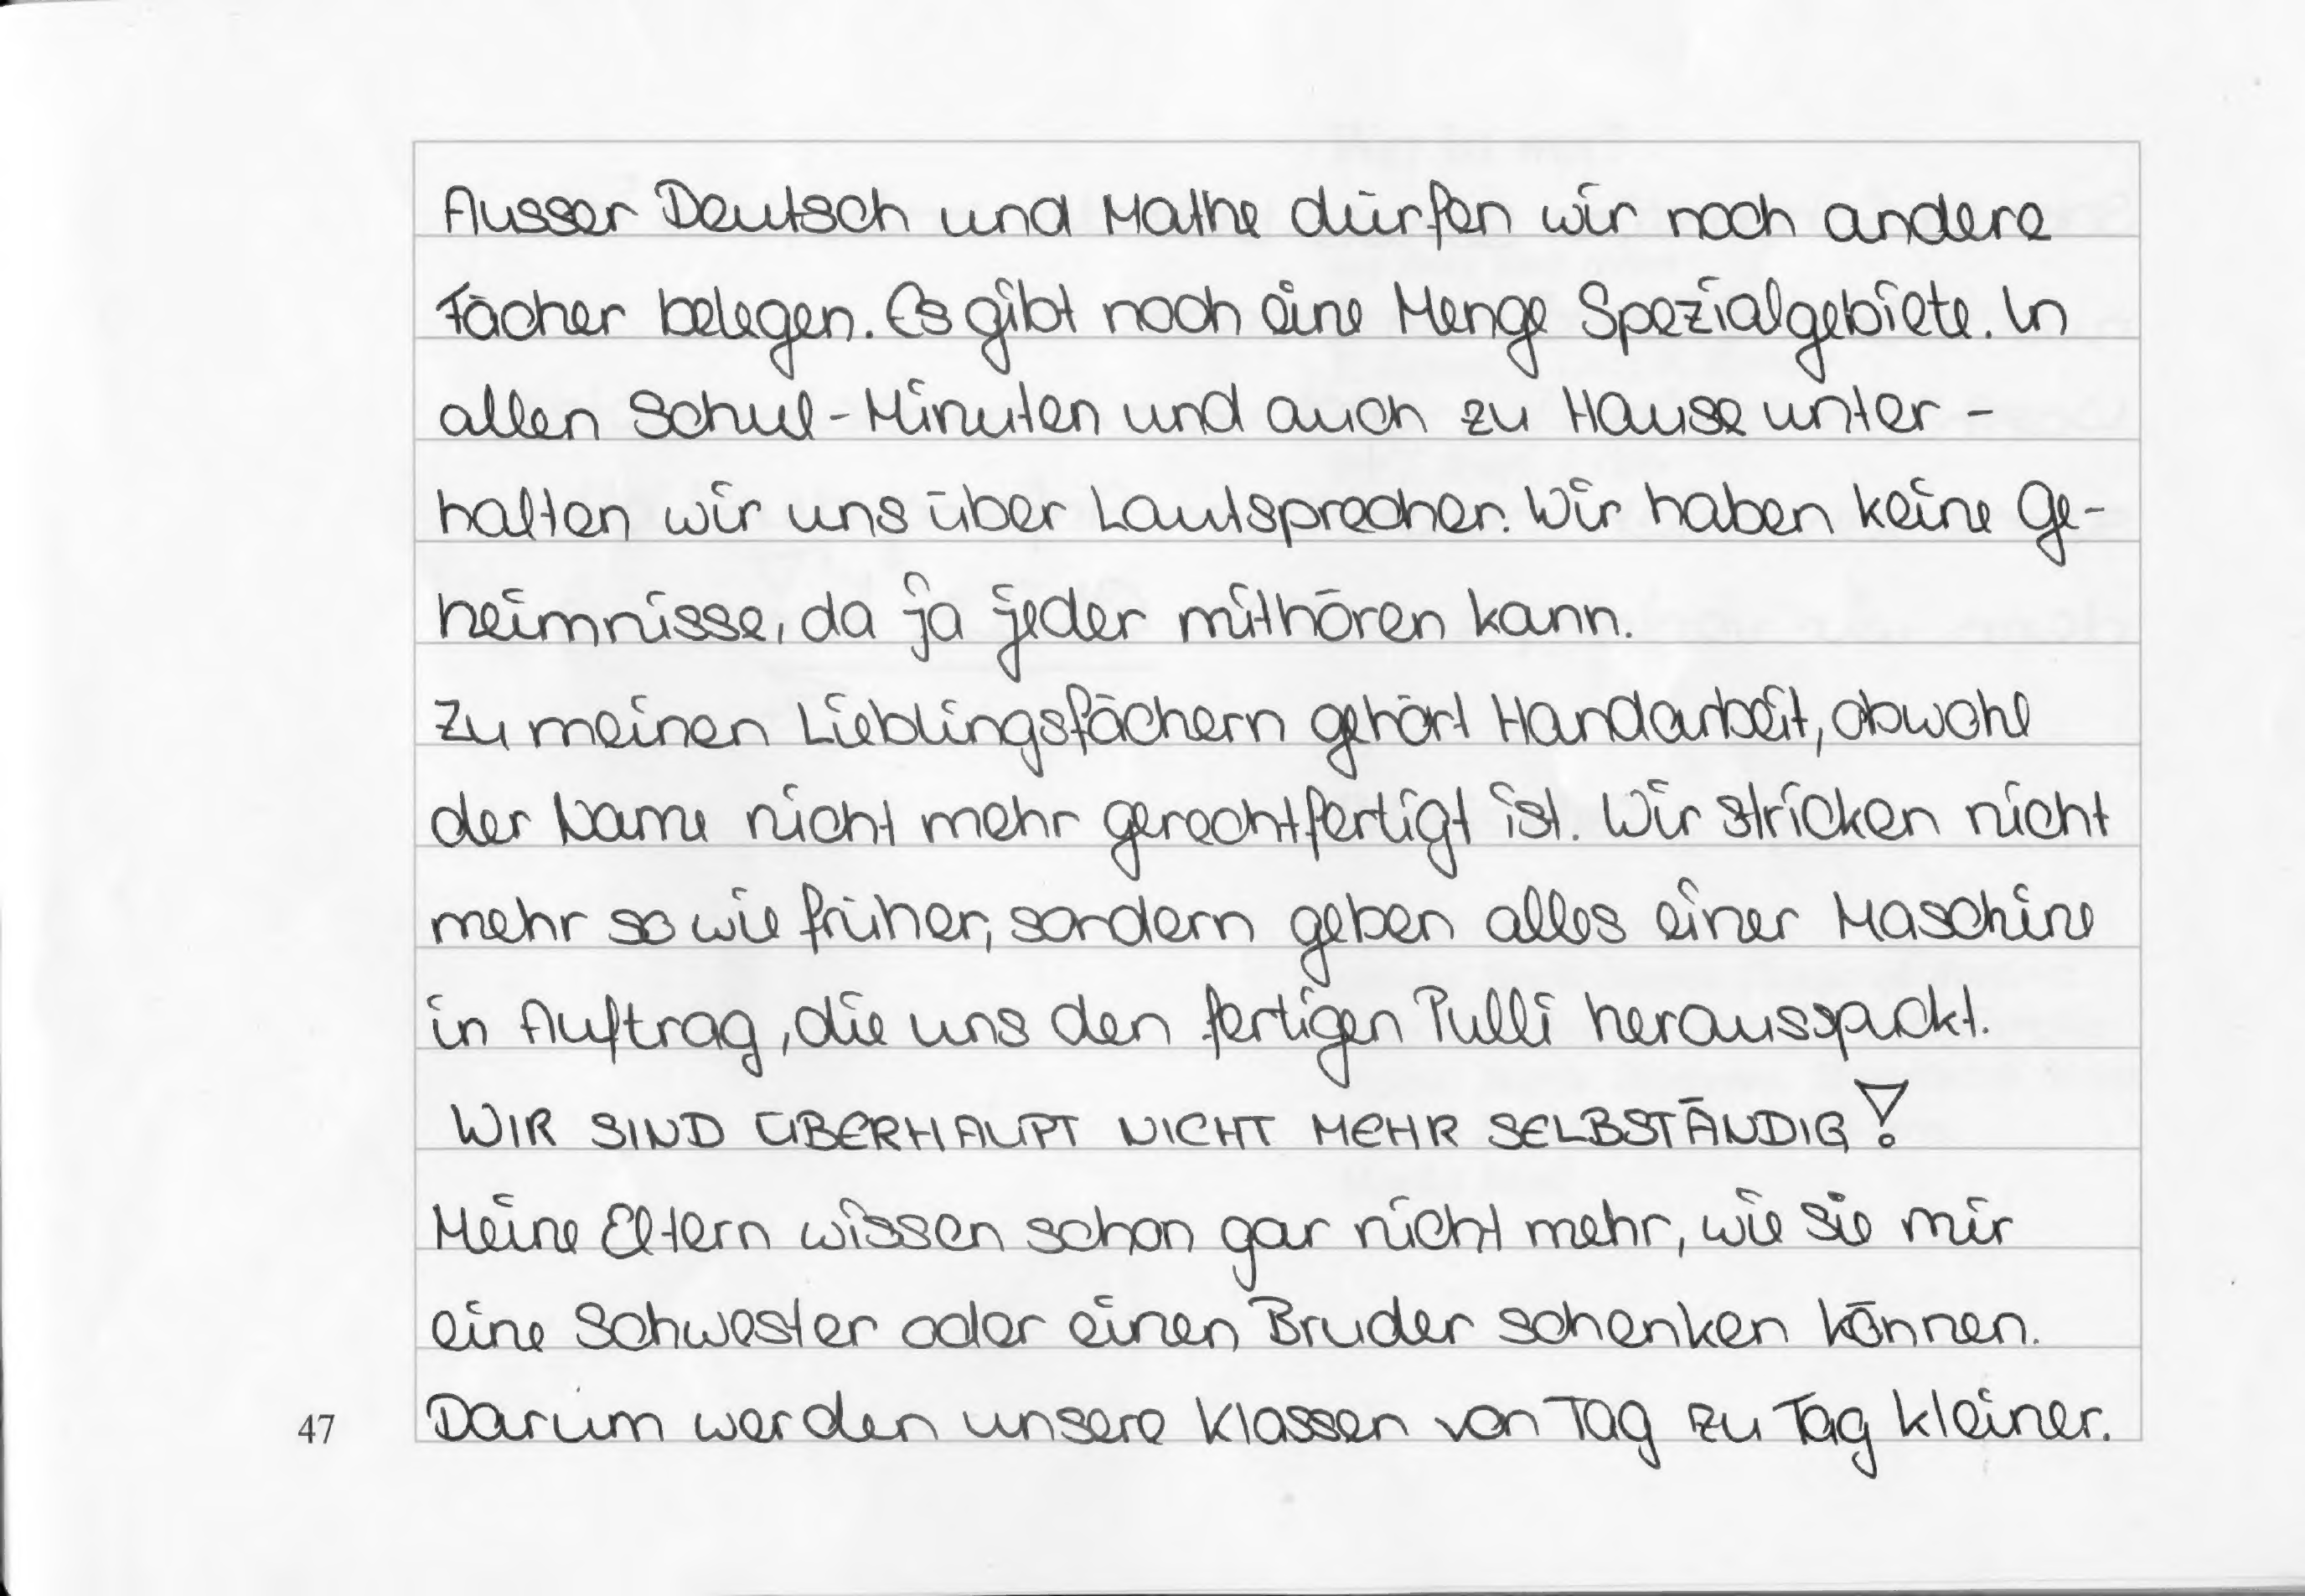 Ausser Deutsch und Mathe dürfen wir noch andere
Fächer belegen. Es gibt noch eine Menge Spezialgebiete. In
allen Schul-Minuten und auch zu Hause unter-
halten wir uns über Lautsprecher. Wir haben keine Ge-
heimnisse, da ja jeder mithören kann.
Zu meinen Lieblingsfächern gehört Handarbeit, obwohl
der Name nicht mehr gerechtfertigt ist. Wir stricken nicht
mehr so wie früher, sondern geben alles einer Maschine
in Auftrag, die uns den fertigen Pulli herausspackt.
WIR SIND ÜBERHAUPT NICHT MEHR SELBSTÄNDIG!
Meine Eltern wissen schon gar nicht mehr, wie sie mir
eine Schwester oder einen Bruder schenken können.
47 Darum werden unsere Klassen von Tag zu Tag kleiner.